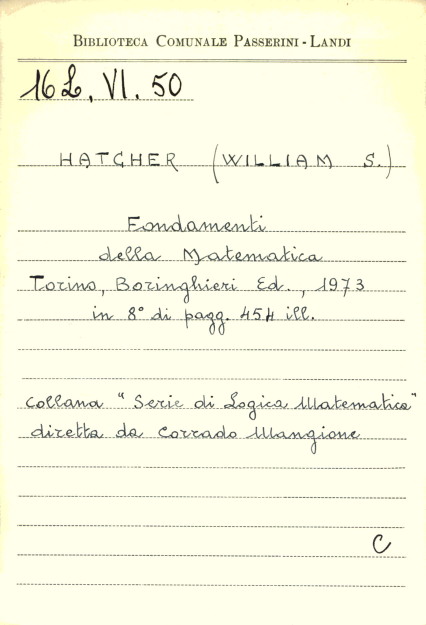 BIBLIOTECA COMUNALE PASSERINI-LANDI
16 L. VI. 50
HATCHER (WILLIAM S.)
Fondamenti
della Matematica
Torino, Boringhieri Ed., 1973
in 8° di pagg. 454 ill.
Collana "Serie di Logica Matematica"
diretta da Corrado Mangione
C